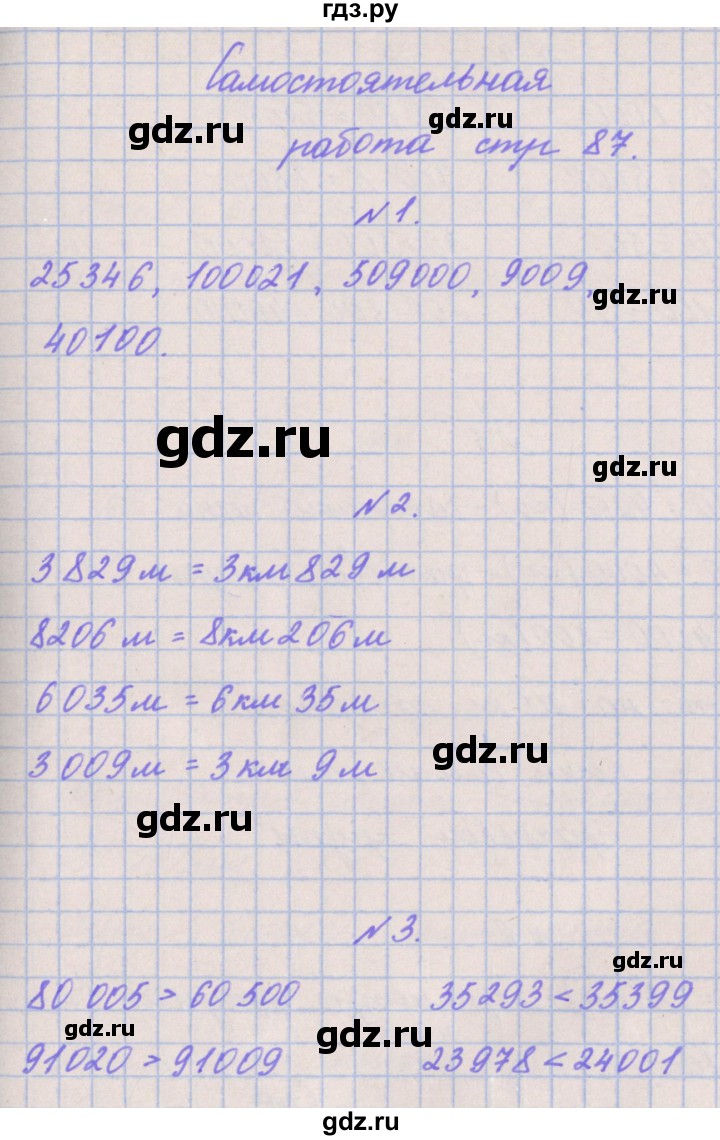 гдз.ру
Самостоятельная
gdz.ru
gdz.ru
работа стр 87.
№1.
25346, 100021, 509000, 9009,
gdz.ru
40100.
gdz.ru
gdz.ru
№2.
3829м = 3км 829м
8206м = 8км 206м
6035м = 6км 35м
3009м = 3км 9м
gdz.ru
gdz.ru
№3.
gdz.ru
80 005 > 60 500 35293 < 35399
gdz.ru
gdz.ru
91020 > 91009 23978 < 24001
gdz.ru